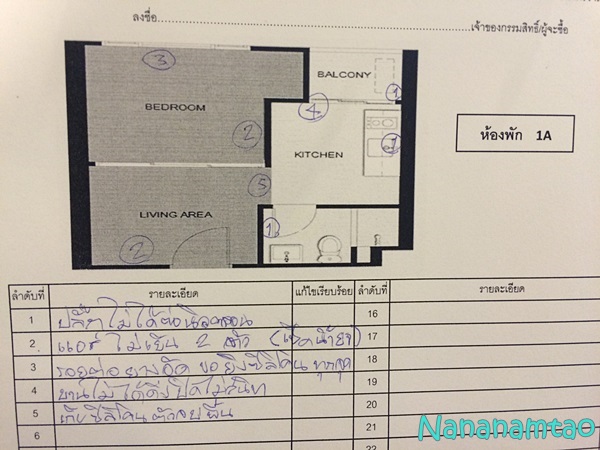 ลงชื่อ........................................................เจ้าของกรรมสิทธิ์/ผู้จะซื้อ
3
BALCONY
1
BEDROOM
4
2
1
ห้องพัก 1A
KITCHEN
5
LIVING AREA
1
2
ลำดับที่ รายละเอียด แก้ไขเรียบร้อย ลำดับที่ รายละเอียด
1 ไม่ได้ 16
2 แอร์ ไม่เย็น 2 ตัว (เช็คน้ำยา) 17
3 รอยต่อ ขอยิงซิลิโคน ทุกจุด 18
4 บานไม่ได้ดิ่ง ปิดไม่สนิท 19
5 เก็บซิลิโคนตัวจบพื้น 20
6 21
22
Nananamtao